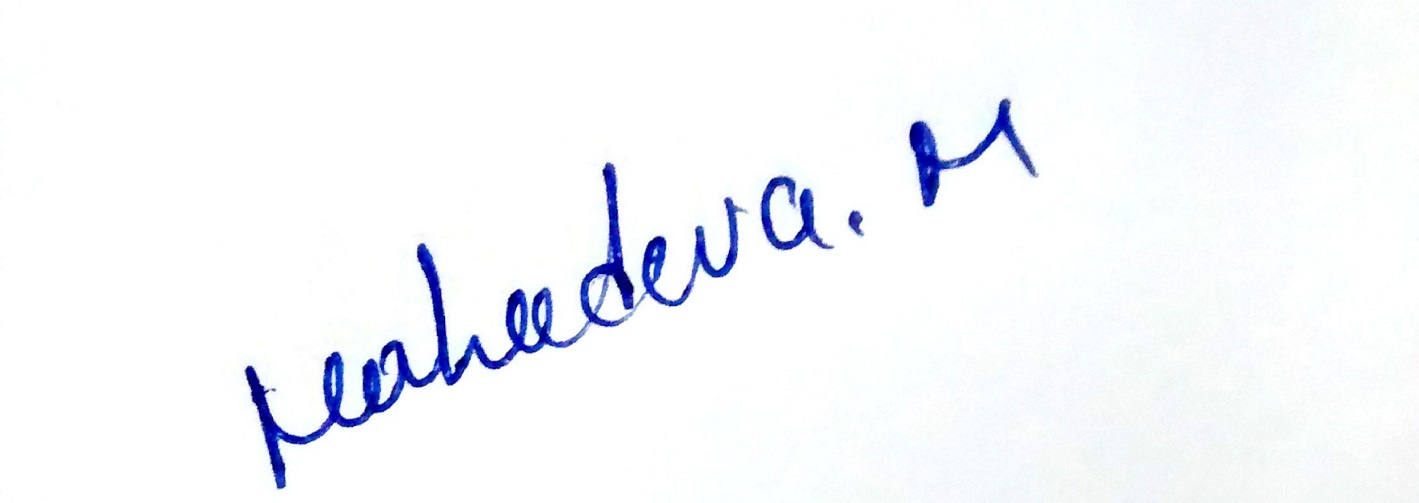 Mahadeva. M